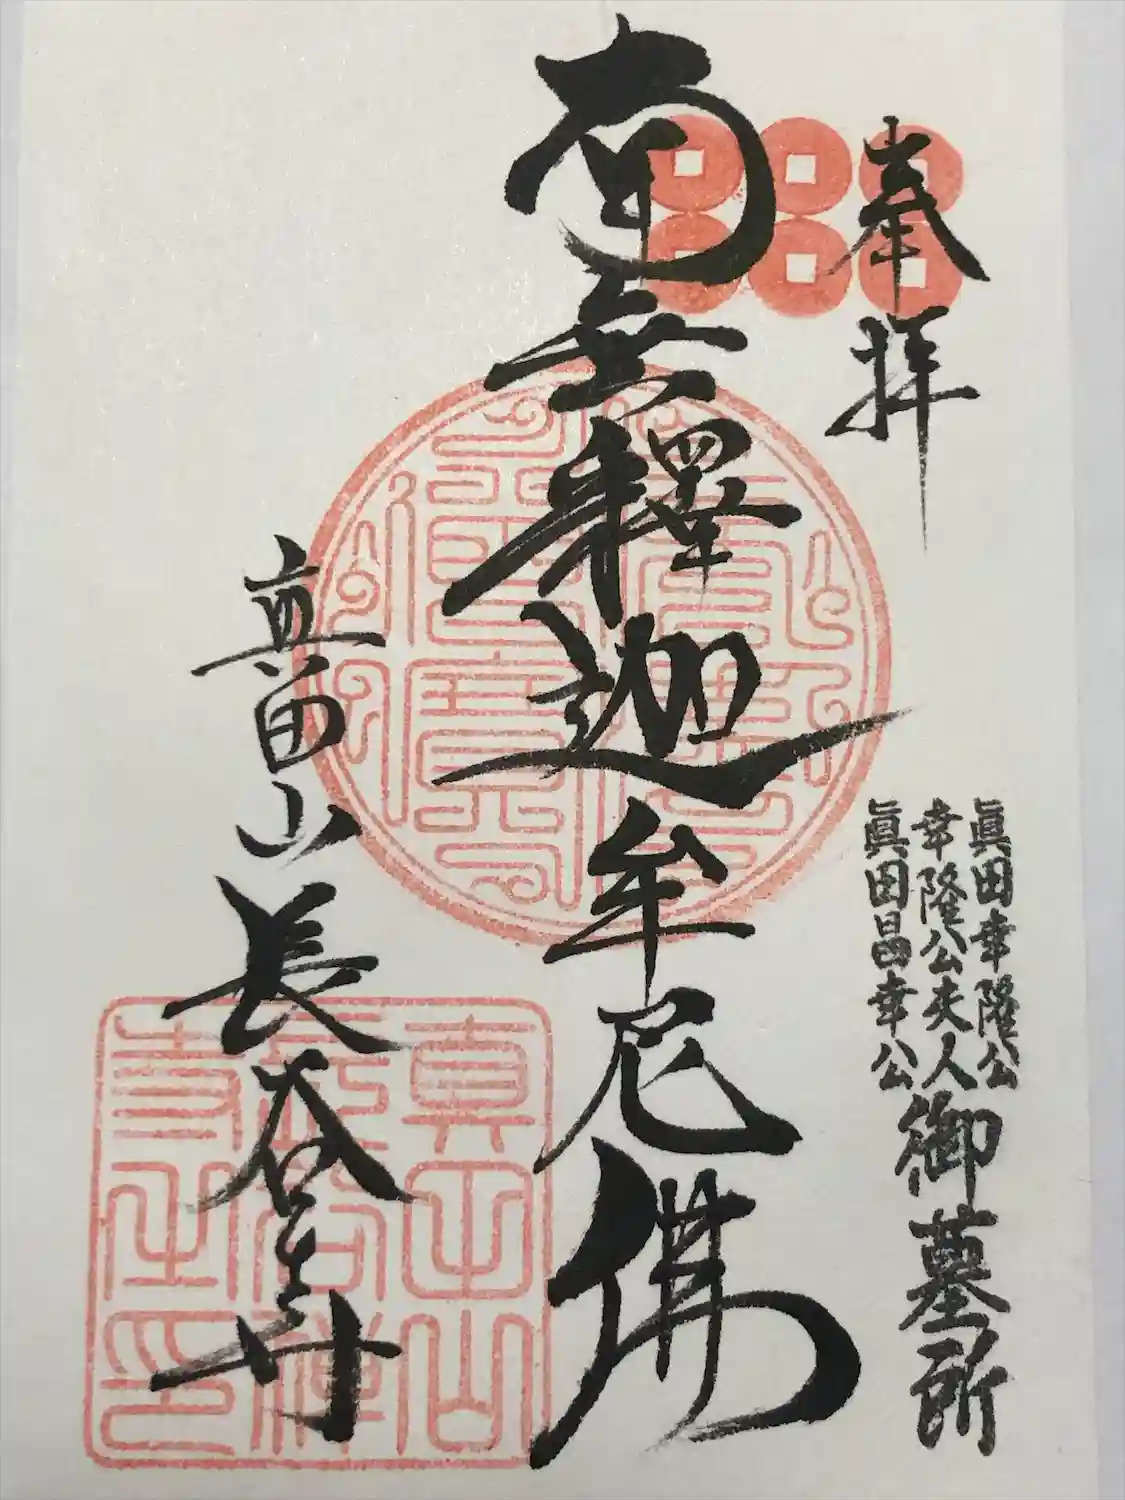 奉拝
眞田幸隆公
幸隆公夫人
眞田昌幸公
御墓所
南無釋迦牟尼佛
真田山長谷寺